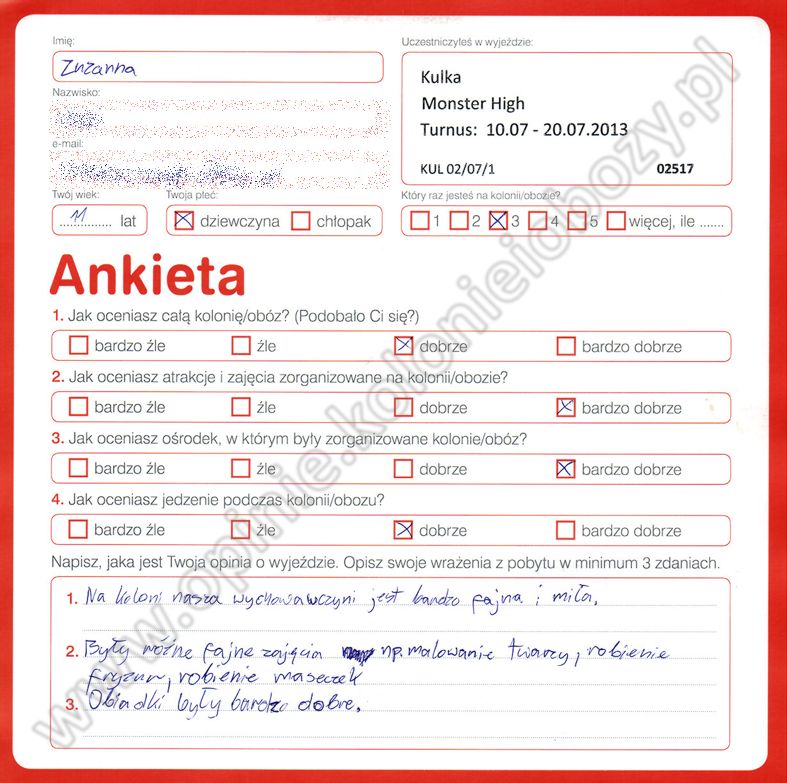 Imię:
Zuzanna
Nazwisko:
e-mail:
Twój wiek:
11 lat
Twoja płeć:
dziewczyna chłopak
Uczestniczyłeś w wyjeździe:
Kulka
Monster High
Turnus: 10.07 - 20.07.2013
KUL 02/07/1 02517
Który raz jesteś na kolonii/obozie?
1 2 3 4 5 więcej, ile .......
Ankieta
1. Jak oceniasz całą kolonię/obóz? (Podobało Ci się?)
bardzo źle źle dobrze bardzo dobrze
2. Jak oceniasz atrakcje i zajęcia zorganizowane na kolonii/obozie?
bardzo źle źle dobrze bardzo dobrze
3. Jak oceniasz ośrodek, w którym były zorganizowane kolonie/obóz?
bardzo źle źle dobrze bardzo dobrze
4. Jak oceniasz jedzenie podczas kolonii/obozu?
bardzo źle źle dobrze bardzo dobrze
Napisz, jaka jest Twoja opinia o wyjeździe. Opisz swoje wrażenia z pobytu w minimum 3 zdaniach.
1. Na koloni nasza wychowawczyni jest bardzo fajna i miła.
2. Były różne fajne zajęcia np. malowanie twarzy, robienie
fryzur, robienie maseczek
3. Obiadki były bardzo dobre.
www.opinie.kolonieiobozy.pl